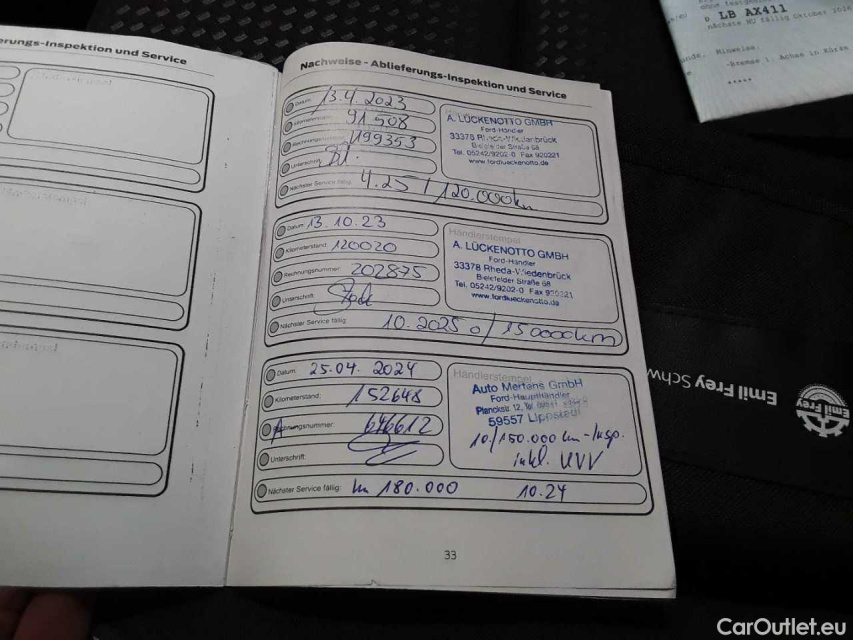 erungs-Inspektion und Service
Nachweise - Ablieferungs-Inspektion und Service
Datum: 13.4.2023
Kilometerstand: 91 508
Rechnungsnummer: 199353
Unterschrift:
Nächster Service fällig: 4.25 / 120.000km
A. LÜCKENOTTO GMBH
Ford-Händler
33378 Rheda-Wiedenbrück
Bielefelder Straße 68
Tel. 05242/9202-0 Fax 920221
www.fordlueckenotto.de
Datum: 13.10.23
Kilometerstand: 120020
Rechnungsnummer: 202875
Unterschrift:
Nächster Service fällig: 10.2025 o/150000km
Händlerstempel
A. LÜCKENOTTO GMBH
Ford-Händler
33378 Rheda-Wiedenbrück
Bielefelder Straße 68
Tel. 05242/9202-0 Fax 920221
www.fordlueckenotto.de
Datum: 25.04.2024
Kilometerstand: 152648
Rechnungsnummer: 646612
Unterschrift:
Nächster Service fällig: km 180.000 10.24
Händlerstempel
Auto Mertens GmbH
Ford-Haupthändler
Planckstr. 12, Tel
59557 Lippstadt
10/150.000 km-Insp.
inkl. UVV
33
D LB AX411
nächste HU fällig Oktober
Hinweise.
Emil Frey Schw
Emil Frey
CarOutlet.eu